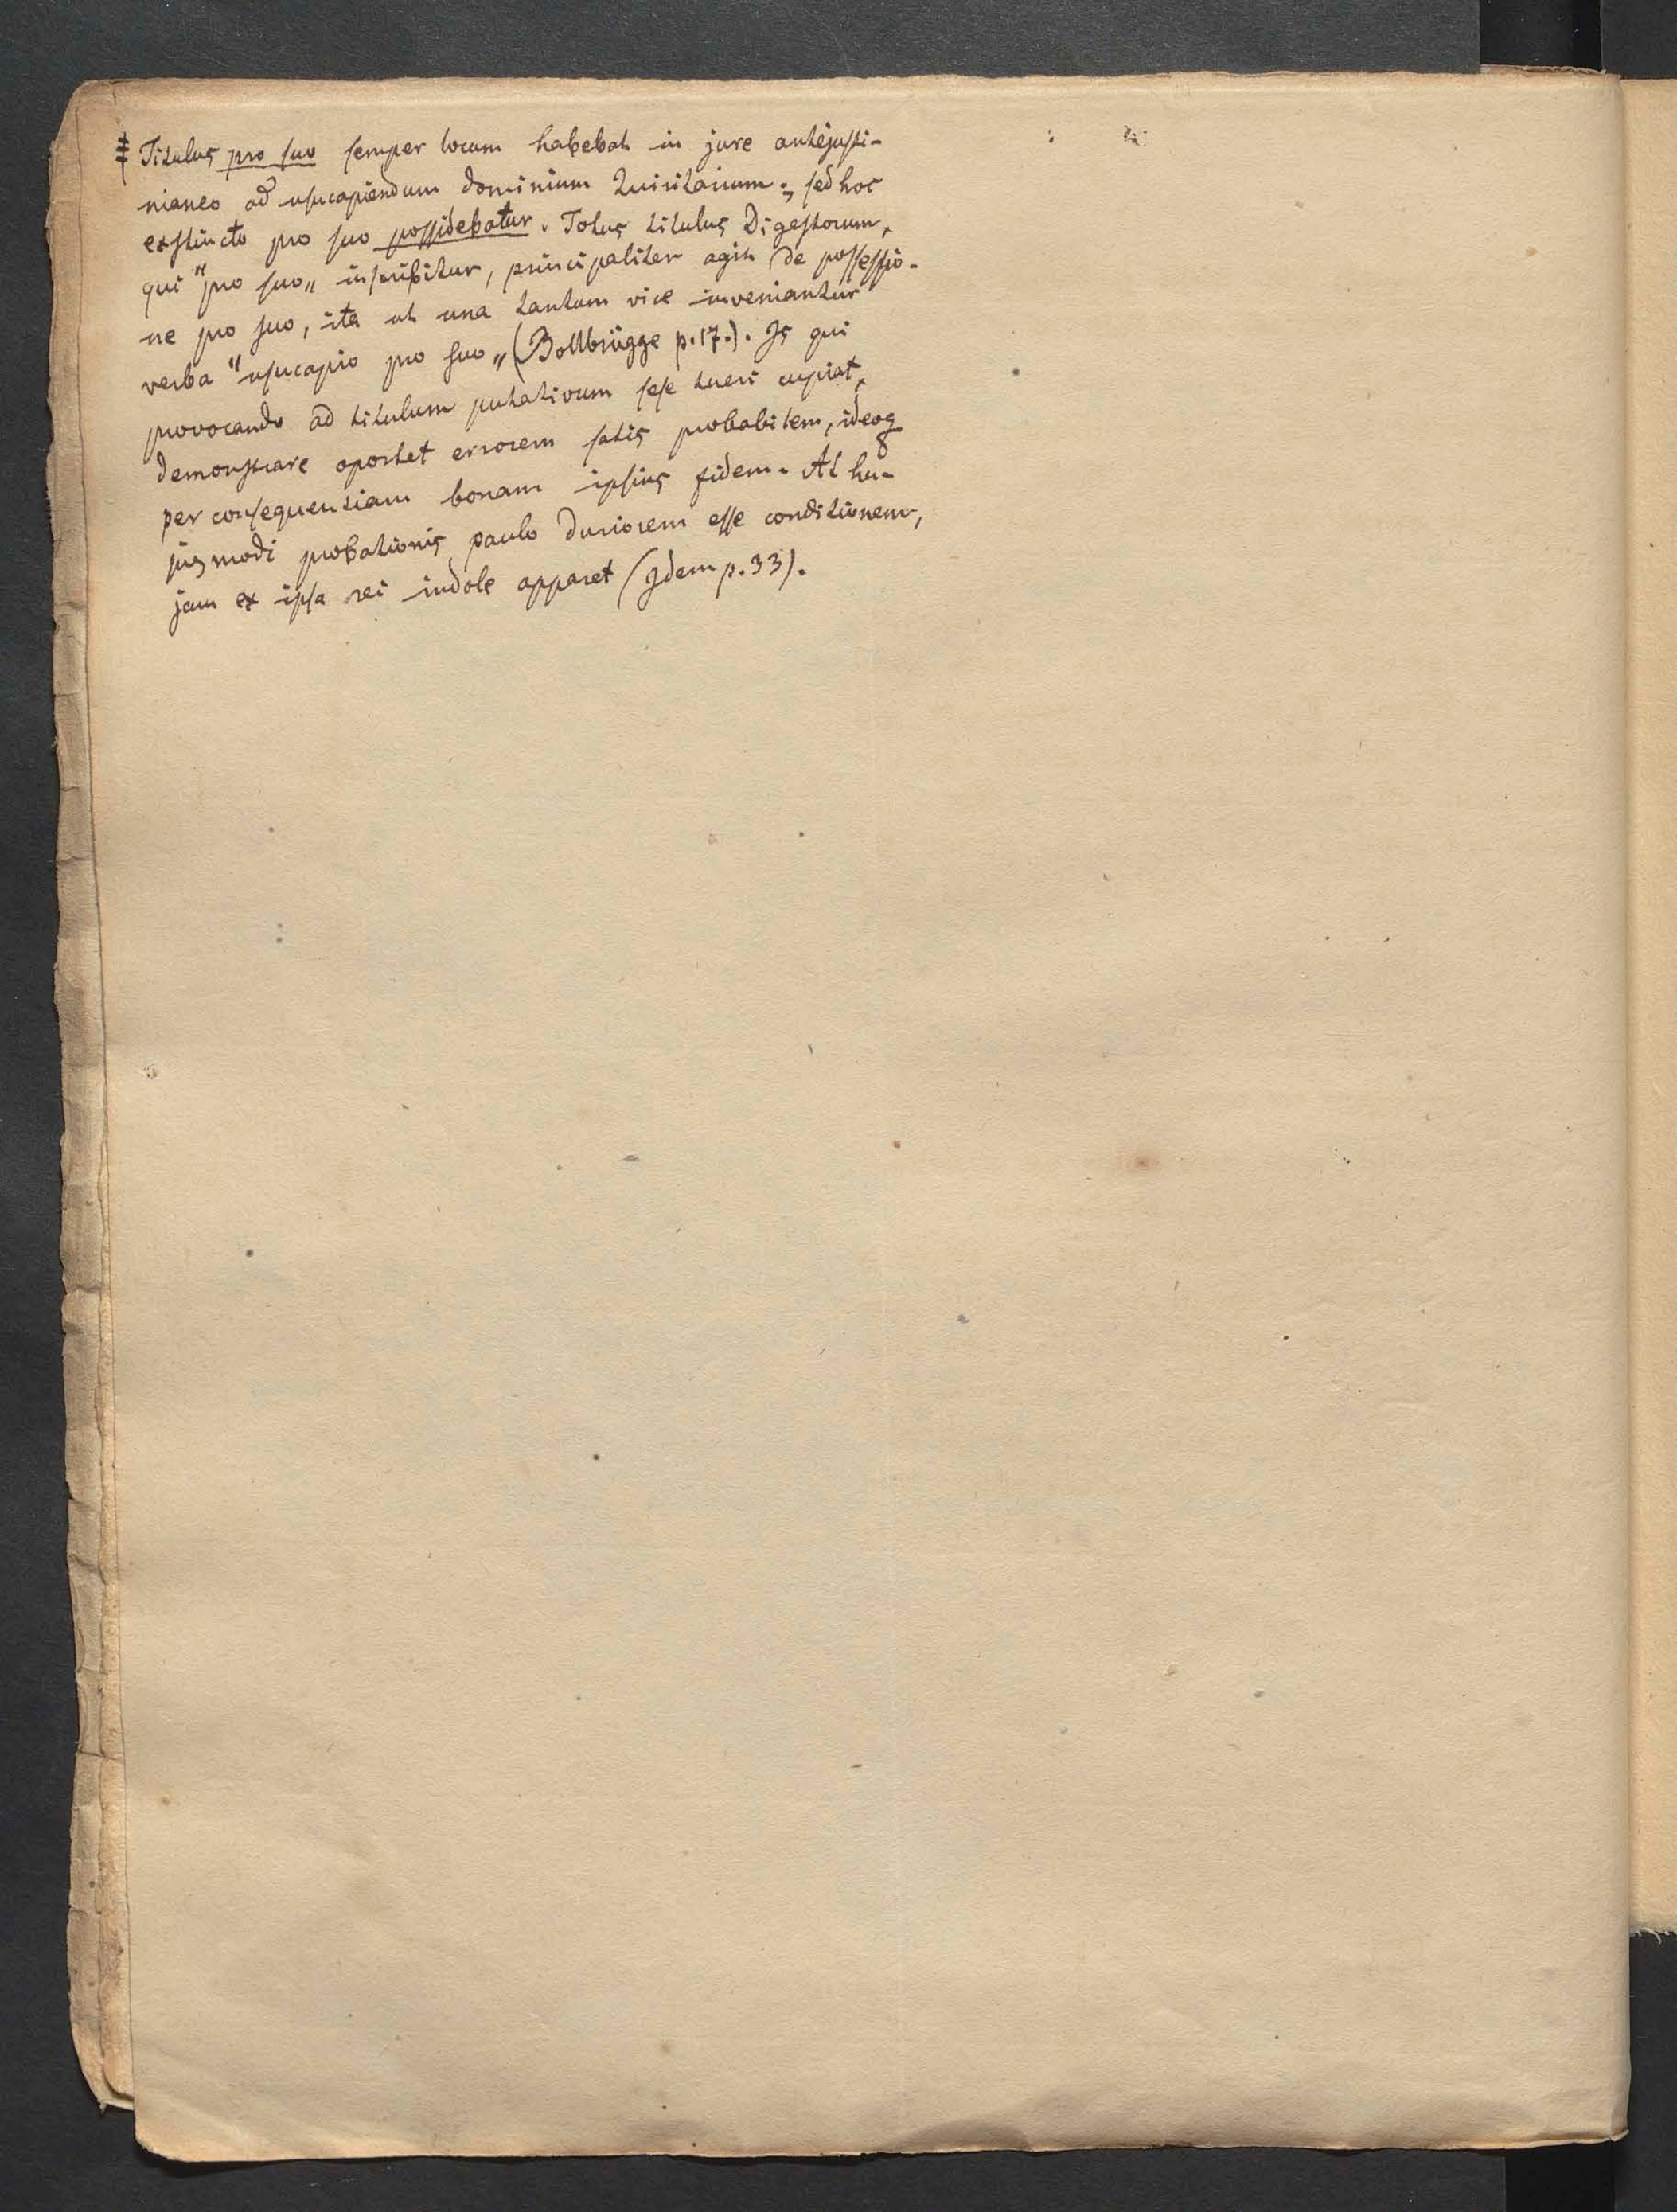 ‡ Titulus pro suo semper locum habebat in jure antejusti-
nianeo ad usucapiendum dominium Quiritarium; sed hoc
exstincto pro suo possidebatur. Totus titulus Digestorum,
qui "pro suo" inscribitur, principaliter agit de possessio-
ne pro suo, ita ut una tantum vice inveniantur
verba "usucapio pro suo" (Bollbrügge p. 17.). Is qui
provocando ad titulum putativum sese tueri cupiat,
demonstrare oportet errorem satis probabilem, ideoq
per consequentiam bonam ipsius fidem. At hu-
jusmodi probationis paulo duriorem esse conditionem,
jam ex ipsa rei indole apparet (Idem p. 33).